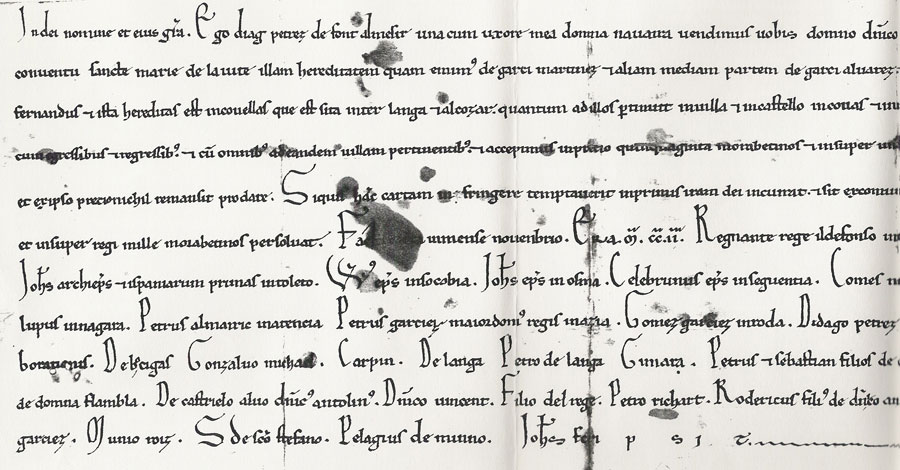 In dei nomine et eius gr̃a. Ego diag petrez de font almesir una cum uxore mea domna nauarra uendimus uobis domno dñico
conuentu sancte marie de la uite illam hereditatem quam emim⁹ de garci martinez ⁊ aliam mediam partem de garci aluarez.
fernandus ⁊ ista hereditas est in couellas que est sita inter langa ⁊ alcozar. quantum ad illos ꝑtinuit in uilla ⁊ in castello in couas ⁊
cum egressibus ⁊ regressib⁹. ⁊ cũ omnib⁹ ad eandem uillam pertinentib⁹. ⁊ accepimus in precio quinquaginta morabetinos ⁊ insuper
et ex ipso precio nichil remansit pro dare. Si quis hãc cartam in fringere temptauerit inprimis iram dei incurrat. ⁊ sit
et insuper regi mille morabetinos persoluat. mense nouenbrio. Era. m̃. cc.ii. Regnante rege ildefonso
Johs archiep̃s ⁊ ispaniarum primas in toleto. ep̃s in socobia. Johs ep̃s in osma. Celebrunus ep̃s in seguentia. Comes
lupus in nagara. Petrus almanric in atencia Petrus garciez maiordom⁹ regis in Gomez garciez in roda. Didago petrez
Gonzaluo Carpin. De langa Petro de langa Gunara. Petrus ⁊ sebastian filios de
de domna flambla. De castrielo aluo dñic⁹ antolin⁹. Dñico uincent. Filio del rege. Petro richart. Rodericus fili⁹ de dñico
garciez. Munio roiz. S de sc̃o stefano. Pelagius de nunno. Johes p s i t.